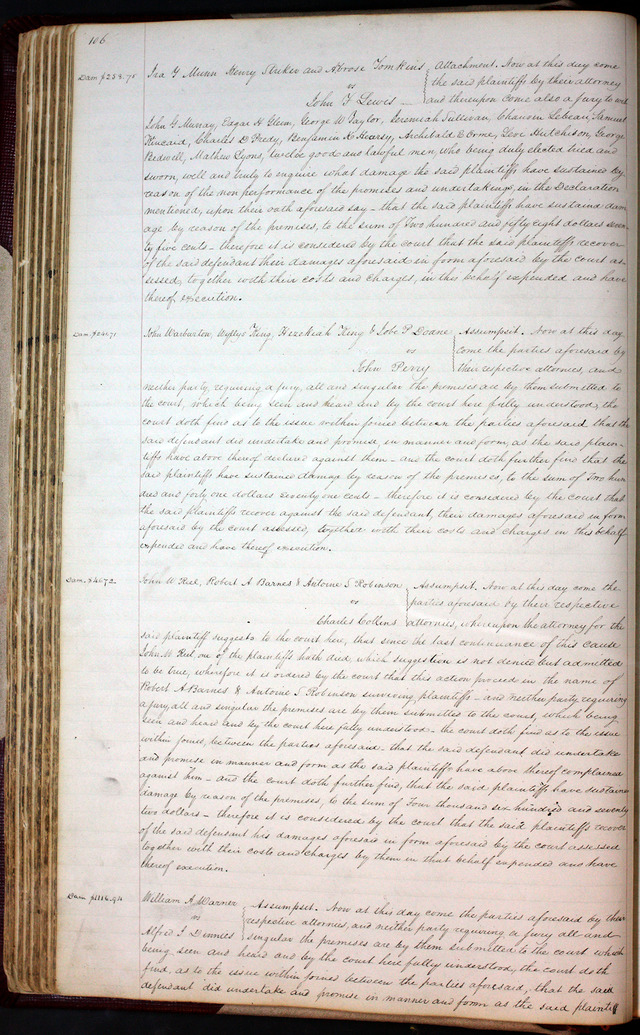 106
Dam $258.75
Ira Y Munn Henry Striker and Abrose Tomkins Attachment. Now at this day come
vs the said plaintiffs by their attorney
John F Lewis and thereupon come also a jury to wit
John G Murray, Edgar H Gleim, George W Taylor, Jeremiah Sullivan, Chauvin Lebeau, Samuel
Kincaid, Charles D Tredy, Benjamin K Hersey, Archibald C Orme, Levi Hutchison, George
Bedwell, Mathew Lyons, twelve good and lawful men, who being duly elected tried and
sworn, well and truly to enquire what damage the said plaintiffs have sustained by
reason of the non performance of the promises and undertakings, in the Declaration
mentioned, upon their oath aforesaid say - that the said plaintiff have sustaind dam
age by reason of the premises, to the sum of Two hundred and fifty eight dollars seven
ty five cents - therefore it is considered by the court that the said plaintiffs recover
of the said defendant their damages aforesaid in form aforesaid by the court as-
sessed, together with their costs and charges, in this behalf expended and have
thereof execution.
Dam $246.71
John Warburton, King, Hezekiah King & Lobe P Doane Assumpsit. Now at this day
vs come the parties aforesaid by
John Perry their respective attornies, and
neither party, requiring a jury, all and singular the premises are by them submitted to
the court, which being seen and heard and by the court here fully understood, the
court doth find as to the issue within joined between the parties aforesaid that the
said defendant did undertake and promise, in manner and form, as the said plain-
tiffs have above thereof declared against them - and the court doth further find that the
said plaintiffs have sustained damage by reason of the premises, to the sum of Two hun
dred and forty one dollars seventy one cents - therefore it is considered by the court that
the said plaintiffs recover against the said defendant, their damages aforesaid in form
aforesaid by the court assessed, together with their costs and charges in this behalf
expended and have thereof execution.
Dam. $4672
John W Reel, Robert A Barnes & Antoine S Robinson Assumpsit. Now at this day come the
vs parties aforesaid by there respective
Charles Collins attornies, whereupon the attorney for the
said plaintiff suggests to the court here, that since the last continuance of this cause
John W Reel, one of the plaintiffs hath died, which suggestion is not denied but admitted
to be true, wherefore it is ordered by the court that this action proceed in the name of
Robert A Barnes & Antoine S Robinson surviving plaintiffs - and neither party requiring
a jury, all and singular the premises are by them submitted to the court, which being
seen and heard and by the court here fully understood - the court doth find as to the issue
within joined, between the parties aforesaid - that the said defendant did undertake
and promise in manner and form as the said plaintiffs have above thereof complained
against him - and the court doth further find, that the said plaintiffs have sustained
damage by reason of the premises, to the sum of Four thousand six hundred and seventy
two dollars - therefore it is considered by the court that the said plaintiffs recover
of the said defendant his damages aforesaid in form aforesaid by the court assessed
together with their costs and charges by them in that behalf expended and have
thereof execution.
Dam $1116.94
William A Warner Assumpsit. Now at this day come the parties aforesaid by their
vs respective attornies, and neither party requiring a jury all and
Alfred I Dennies singular the premises are by them submitted to the court which
being seen and heard and by the court here fully understood, the court doth
find, as to the issue within joined between the parties aforesaid, that the said
defendant did undertake and promise in manner and form as the said plaintiff